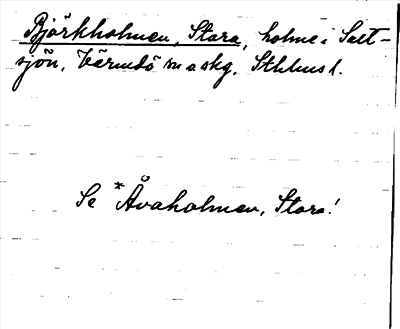 Björkholmen, Stora, holme i Salt-
sjön, Värmdö sn o skg, Sthlms l.
Se *Åvaholmen, Stora!